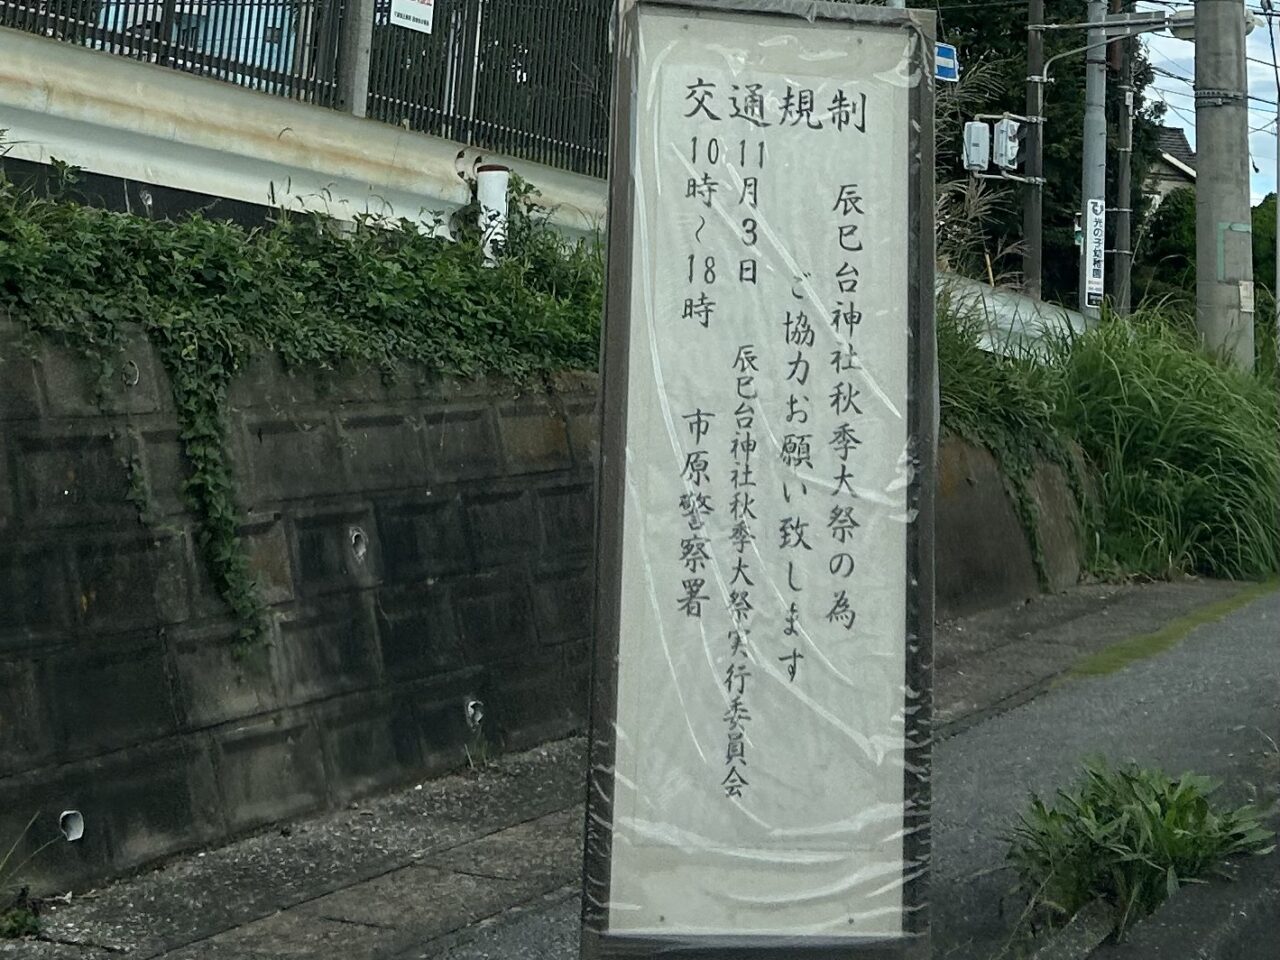 交通規制
辰巳台神社秋季大祭の為
ご協力お願い致します
11月3日
辰巳台神社秋季大祭実行委員会
10時~18時
市原警察署
光の子幼稚園